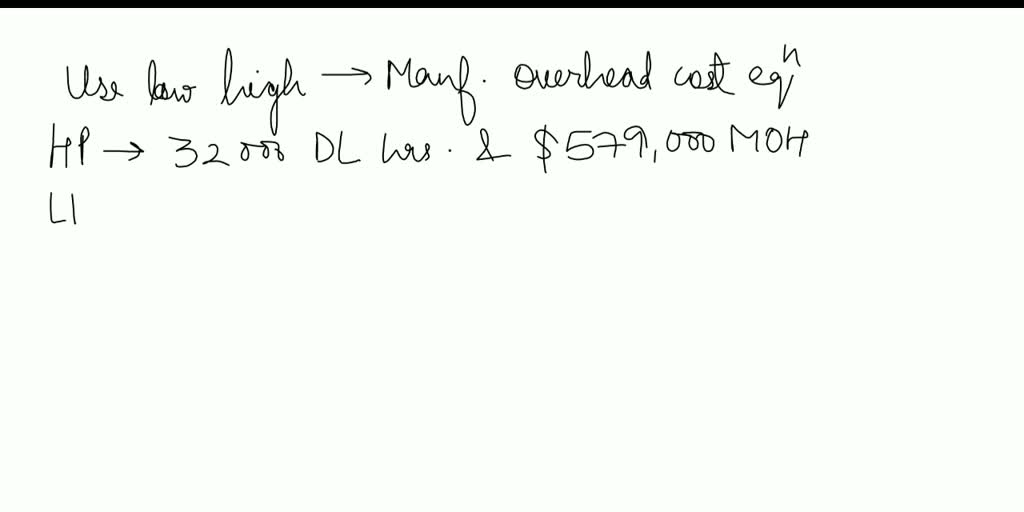 Use low high → Manf. overhead cost eqⁿ
HP → 32000 DL hrs. & $579,000 MOH
LP